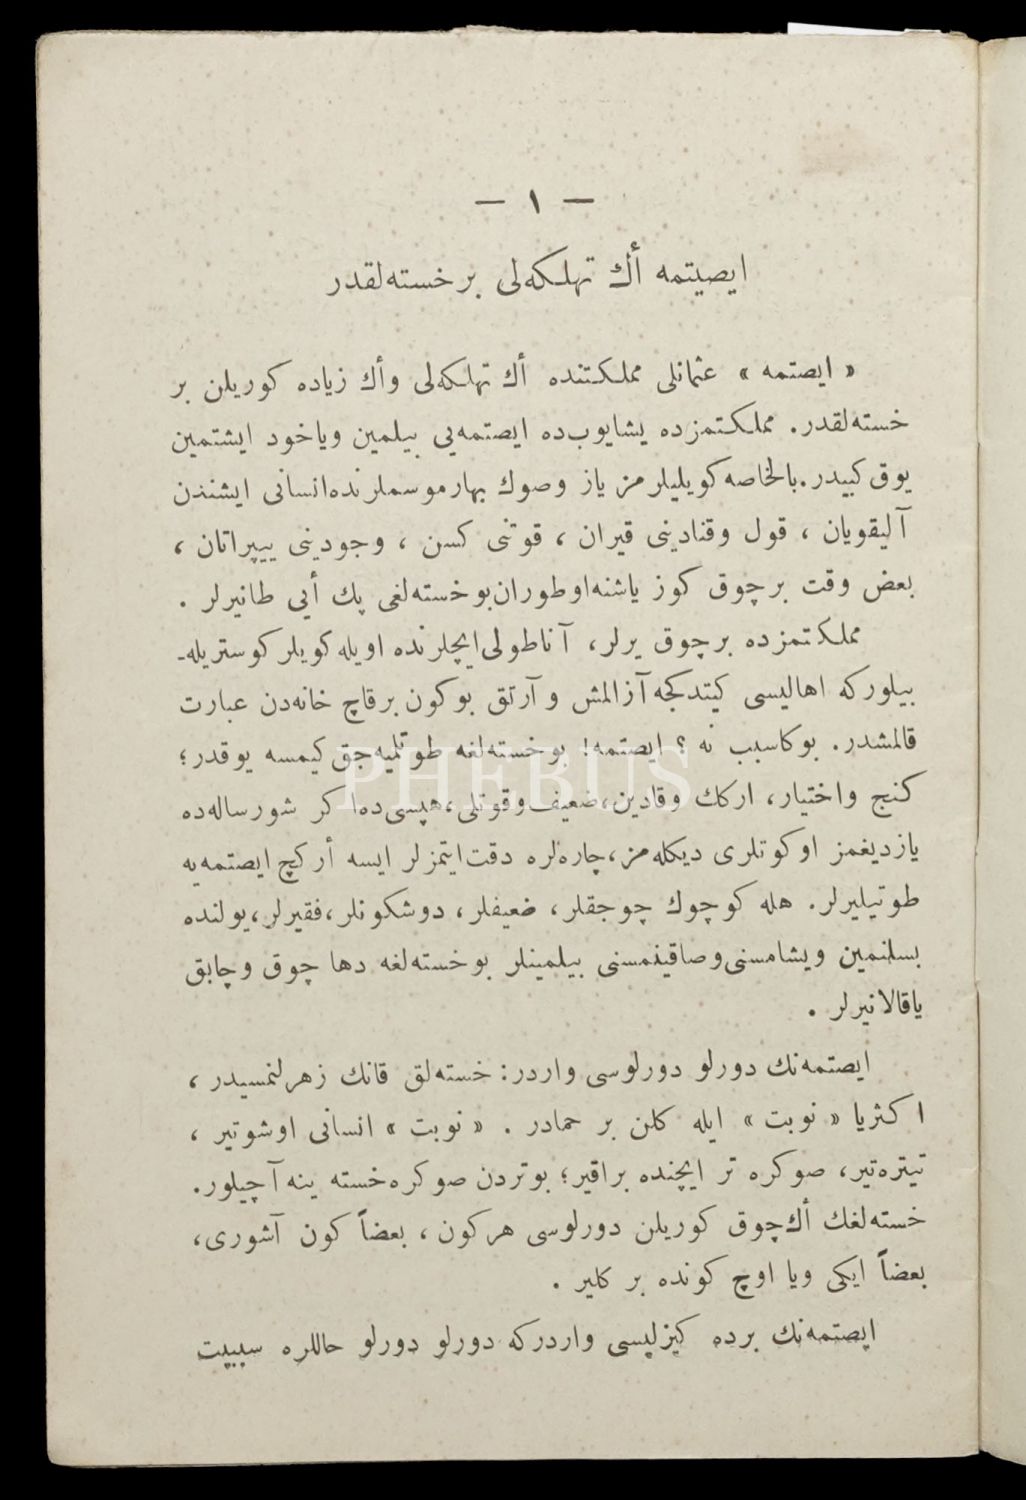 — ١ —
ايصيتمه أك تهلكه‌لى بر خسته‌لقدر
« ايصتمه » عثمانلى مملكتنده أك تهلكه‌لى وأك زياده كوريلن بر
خسته‌لقدر. مملكتمزده يشايوب‌ده ايصتمه‌يي بيلمين وياخود ايشتمين
يوق كبيدر. بالخاصه كويليلرمز ياز وصوك بهار موسملرنده انسانى ايشندن
آليقويان ، قول وقنادينى قيران ، قوتنى كسن ، وجودينى ييپراتان ،
بعض وقت بر چوق كوز ياشنه اوطوران بو خسته‌لغى پك أيي طانيرلر .
مملكتمزده بر چوق يرلر، آناطولى ايچلرنده اويله كويلر كوستريله-
بيلوركه اهاليسى كيتدكجه آزالمش و آرتق بوكون بر قاچ خانه‌دن عبارت
قالمشدر. بوكا سبب نه ؟ ايصتمه! بو خسته‌لغه طوتلميه‌جق كيمسه يوقدر؛
كنج واختيار، اركك وقادين، ضعيف وقوتلى، هپسى ده اكر شو رساله‌ده
يازديغمز اوكوتلرى ديكله‌مز، چاره‌لره دقت ايتمزلر ايسه أركچ ايصتمه‌يه
طوتيليرلر. هله كوچوك چوجقلر، ضعيفلر، دوشكونلر، فقيرلر، يولنده
بسلنمين ويشامسنى وصاقينمسنى بيلمينلر بو خسته‌لغه دها چوق وچابق
ياقالانيرلر .
ايصتمه‌نك دورلو دورلوسى واردر: خسته‌لق قانك زهرلنمسيدر ،
اكثريا « نوبت » ايله كلن بر حمادر . « نوبت » انسانى اوشوتير ،
تيتره‌تير، صوكره تر ايچنده براقير؛ بو تردن صوكره خسته ينه آچيلور.
خسته‌لغك أك چوق كوريلن دورلوسى هركون ، بعضاً كون آشورى،
بعضاً ايكى ويا اوچ كونده بر كلير .
ايصتمه‌نك برده كيزليسى واردركه دورلو دورلو حاللره سببيت
PHEBUS